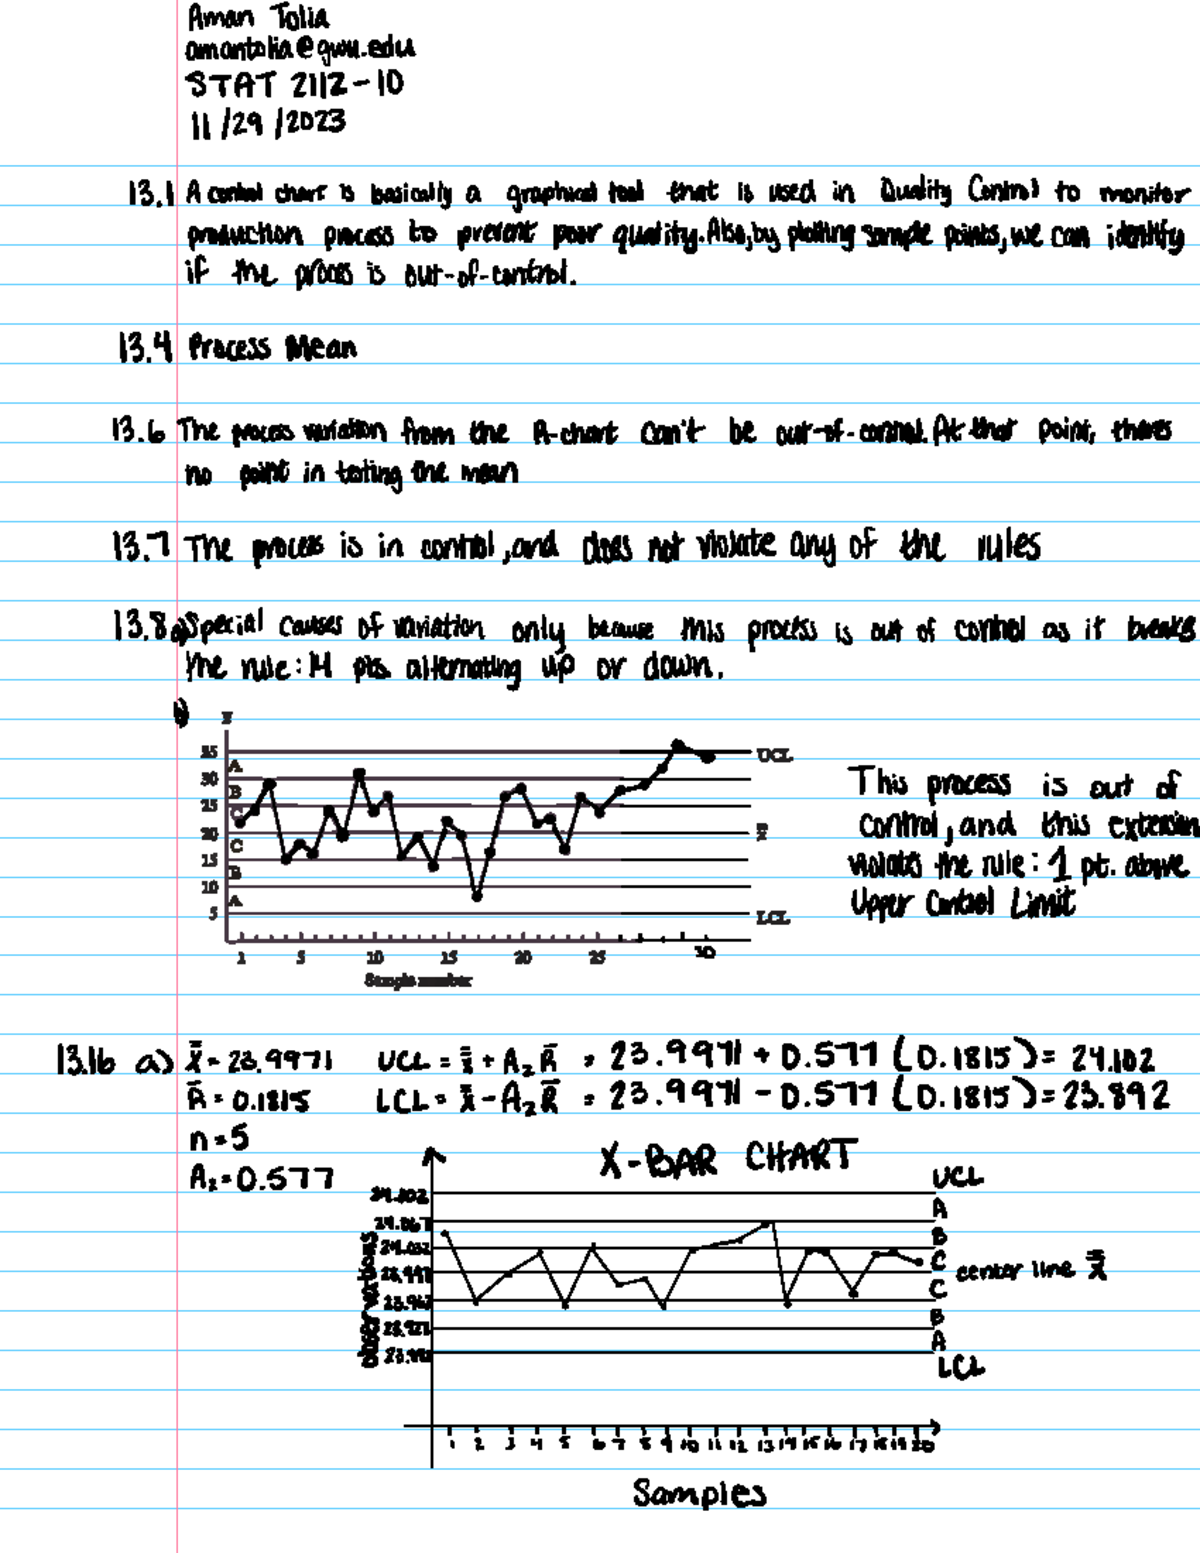 Aman Tolia
amantolia@gwu.edu
STAT 2112-10
11/29/2023
13.1 A control chart is basically a graphical tool that is used in Quality Control to monitor
production process to prevent poor quality. Also, by plotting sample points, we can identify
if the process is out-of-control.
13.4 Process Mean
13.6 The process variation from the R-chart can't be out-of-control. At that point, theres
no point in testing the mean
13.7 The process is in control, and does not violate any of the rules
13.8 a) Special causes of variation only because this process is out of control as it breaks
the rule: 14 pts. alternating up or down.
b) x̄
35 UCL
A
30
B
25
C
20 x̿
C
15
B
10
A
5 LCL
1 5 10 15 20 25 30
Sample number
This process is out of
control, and this extension
violates the rule: 1 pt. above
Upper Control Limit
13.16 a) x̿ = 23.9971 UCL = x̿ + A₂R̄ = 23.9971 + 0.577 (0.1815) = 24.102
R̄ = 0.1815 LCL = x̿ - A₂R̄ = 23.9971 - 0.577 (0.1815) = 23.892
n = 5
A₂ = 0.577
X-BAR CHART
24.102 UCL
A
24.067
B
24.032
C
23.997 center line x̿
C
23.962
B
23.927
A
LCL
observations
1 2 3 4 5 6 7 8 9 10 11 12 13 14 15 16 17 18 19 20
Samples